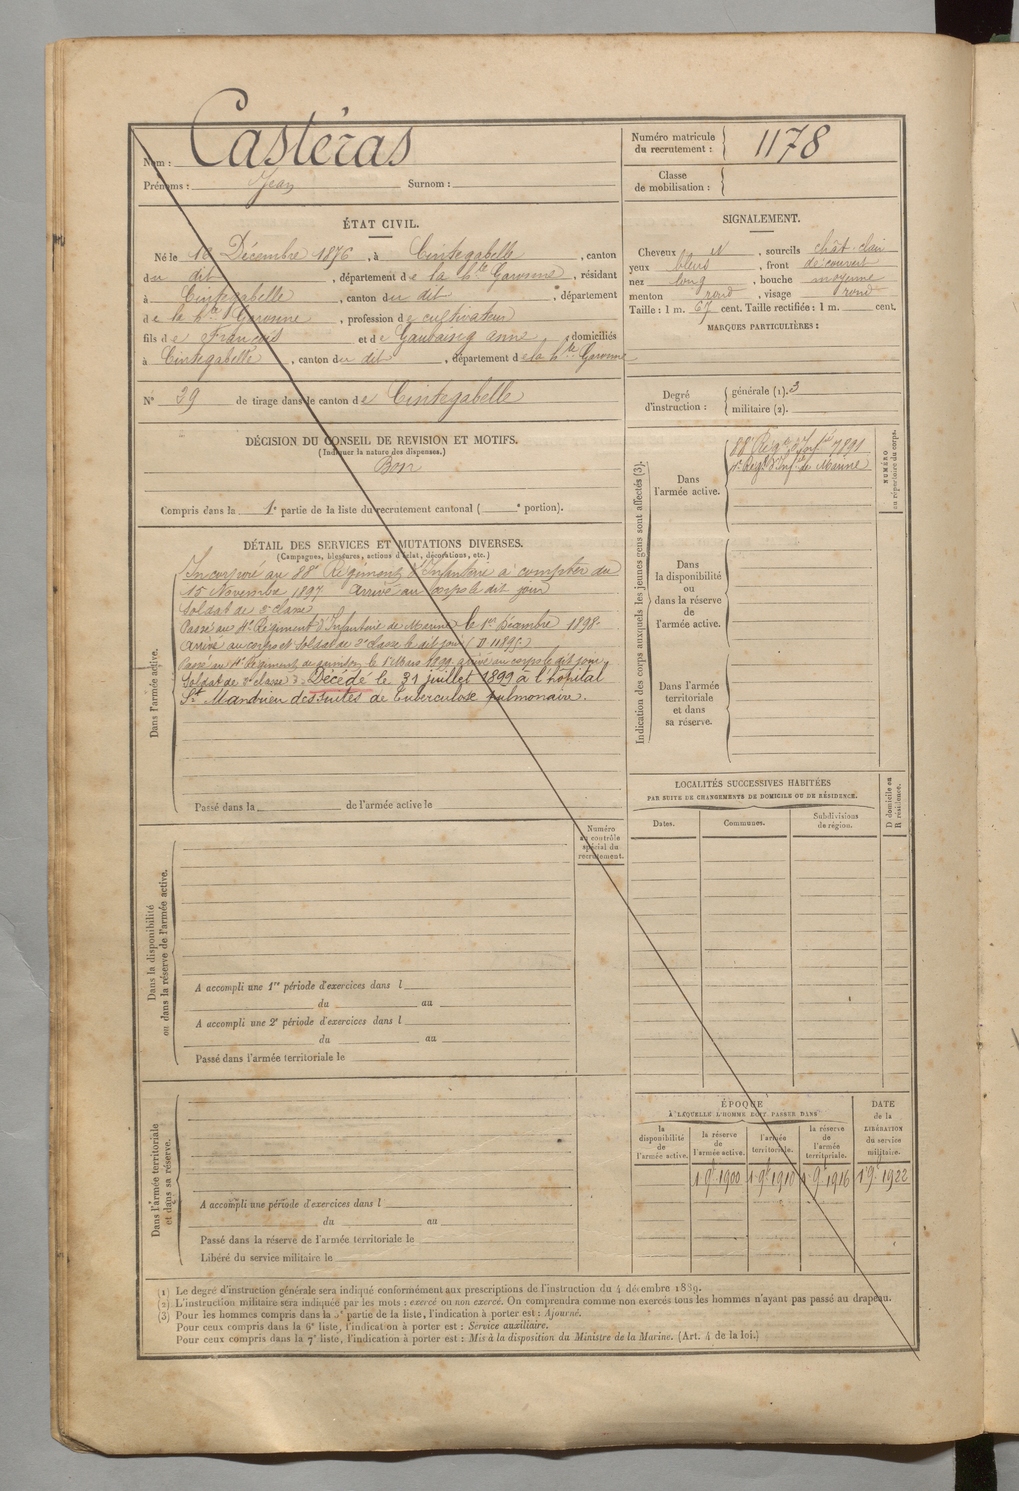 Nom : Castéras
Prénoms : Jean Surnom :
Numéro matricule du recrutement : 1178
Classe de mobilisation :
ÉTAT CIVIL.
Né le 16 Décembre 1876, à Cintegabelle, canton
du dit, département de la hte Garonne, résidant
à Cintegabelle, canton du dit, département
de la hte Garonne, profession de cultivateur
fils de François et de Gaubaiseq Anne, domiciliés
à Cintegabelle, canton du dit, département de la hte Garonne
N° 39 de tirage dans le canton de Cintegabelle
SIGNALEMENT.
Cheveux N, sourcils chât-clair
yeux bleus, front découvert
nez long, bouche moyenne
menton rond, visage rond
Taille : 1 m. 67 cent. Taille rectifiée : 1 m. cent.
MARQUES PARTICULIÈRES :
Degré d'instruction : générale (1). 3
militaire (2).
DÉCISION DU CONSEIL DE REVISION ET MOTIFS.
(Indiquer la nature des dispenses.)
Bon
Compris dans la 1e partie de la liste du recrutement cantonal ( e portion).
DÉTAIL DES SERVICES ET MUTATIONS DIVERSES.
(Campagnes, blessures, actions d'éclat, décorations, etc.)
Dans l'armée active.
Incorporé au 88e Régiment d'Infanterie à compter du
15 Novembre 1897 Arrivé au corps le dit jour
Soldat de 2e classe
Passé au 4e Régiment d'Infanterie de Marine le 1er Décembre 1898
Arrivé au corps et Soldat de 2e classe le dit jour
Passé au 4e Régiment de le 1 Mars 1899 arrivé au corps le dit jour
Soldat de 2e classe d° Décédé le 31 juillet 1899 à l'hôpital
St Mandrier des suites de Tuberculose pulmonaire.
Passé dans la de l'armée active le
Indication des corps auxquels les jeunes gens sont affectés (3).
Dans l'armée active.
88e Régt d'Infie 7891
4e Régt d'Infie de Marine
NUMÉRO au répertoire du corps.
Dans la disponibilité ou dans la réserve de l'armée active.
Dans l'armée territoriale et dans sa réserve.
LOCALITÉS SUCCESSIVES HABITÉES
PAR SUITE DE CHANGEMENTS DE DOMICILE OU DE RÉSIDENCE.
Dates. Communes. Subdivisions de région. D domicile ou R résidence.
Numéro au contrôle spécial du recrutement.
Dans la disponibilité ou dans la réserve de l'armée active.
A accompli une 1re période d'exercices dans l
du au
A accompli une 2e période d'exercices dans l
du au
Passé dans l'armée territoriale le
Dans l'armée territoriale et dans sa réserve.
A accompli une période d'exercices dans l
du au
Passé dans la réserve de l'armée territoriale le
Libéré du service militaire le
ÉPOQUE
À LAQUELLE L'HOMME DOIT PASSER DANS
la disponibilité de l'armée active.
la réserve de l'armée active.
l'armée territoriale.
la réserve de l'armée territoriale.
DATE de la LIBÉRATION du service militaire.
1 9e 1900 1 9e 1910 1 9e 1916 1 9e 1922
(1) Le degré d'instruction générale sera indiqué conformément aux prescriptions de l'instruction du 4 décembre 1889.
(2) L'instruction militaire sera indiquée par les mots : exercé ou non exercé. On comprendra comme non exercés tous les hommes n'ayant pas passé au drapeau.
(3) Pour les hommes compris dans la 5e partie de la liste, l'indication à porter est : Ajourné.
Pour ceux compris dans la 6e liste, l'indication à porter est : Service auxiliaire.
Pour ceux compris dans la 7e liste, l'indication à porter est : Mis à la disposition du Ministre de la Marine. (Art. 4 de la loi.)